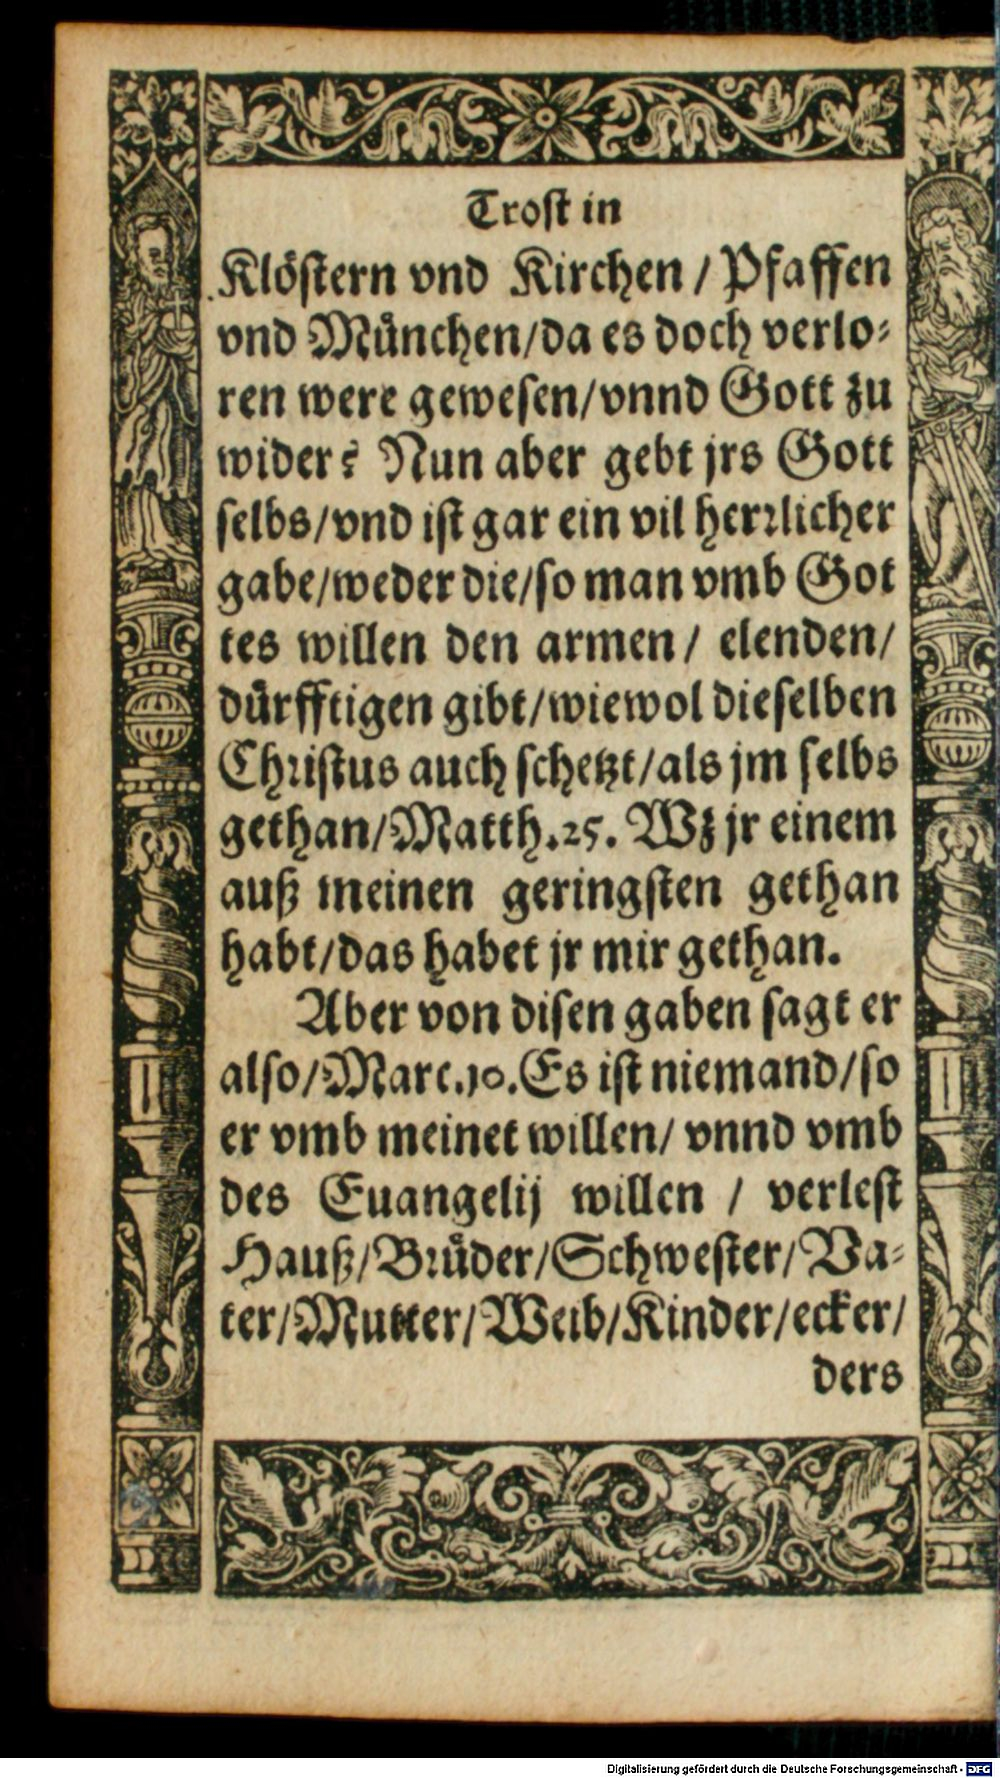 Trost in
Klöstern vnd Kirchen / Pfaffen
vnd München/da es doch verlo⸗
ren were gewesen/vnnd Gott zu
wider? Nun aber gebt jrs Gott
selbs/vnd ist gar ein vil herrlicher
gabe/weder die/so man vmb Got
tes willen den armen/ elenden/
dürfftigen gibt/wiewol dieselben
Christus auch schetzt/als jm selbs
gethan/Matth.25. Wz jr einem
auß meinen geringsten gethan
habt/das habet jr mir gethan.
Aber von disen gaben sagt er
also/Marc.10.Es ist niemand/so
er vmb meinet willen/ vnnd vmb
des Euangelij willen / verlest
Hauß/Brüder/Schwester/Va⸗
ter/Mutter/Weib/Kinder/ecker/
ders
Digitalisierung gefördert durch die Deutsche Forschungsgemeinschaft - DFG